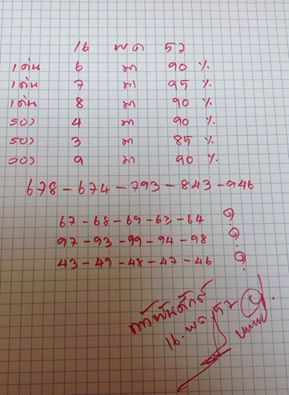 16 พค 57
เด่น 6 มา 90 %
เด่น 7 มา 95 %
เด่น 8 มา 90 %
รอง 4 มา 90 %
รอง 3 มา 85 %
รอง 9 มา 90 %
678 - 674 - 793 - 843 - 946
67 - 68 - 69 - 63 - 64
97 - 93 - 99 - 94 - 98
43 - 49 - 48 - 47 - 46
16 พค 57